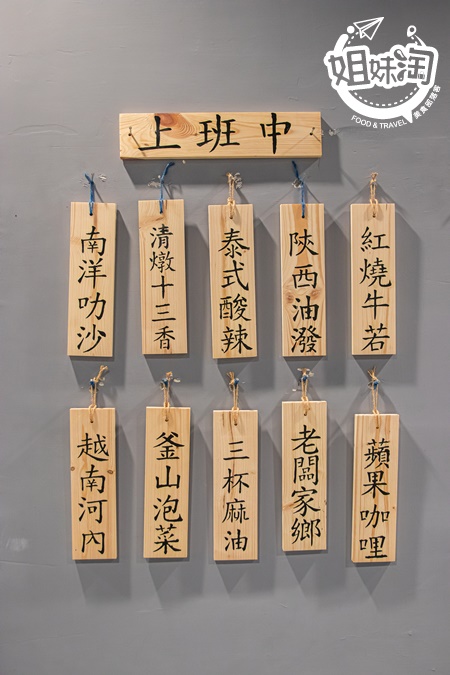 姐妹淘
FOOD & TRAVEL 美食部落客
上班中
紅燒牛若
陝西油潑
泰式酸辣
清燉十三香
南洋叻沙
蘋果咖哩
老闆家鄉
三杯麻油
釜山泡菜
越南河內